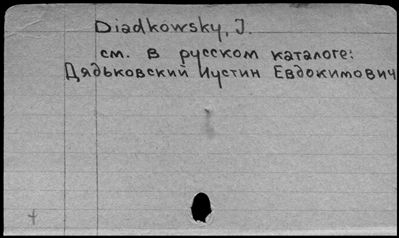 Diadkowsky, J.
см. в русском каталоге:
Дядьковский Иустин Евдокимович